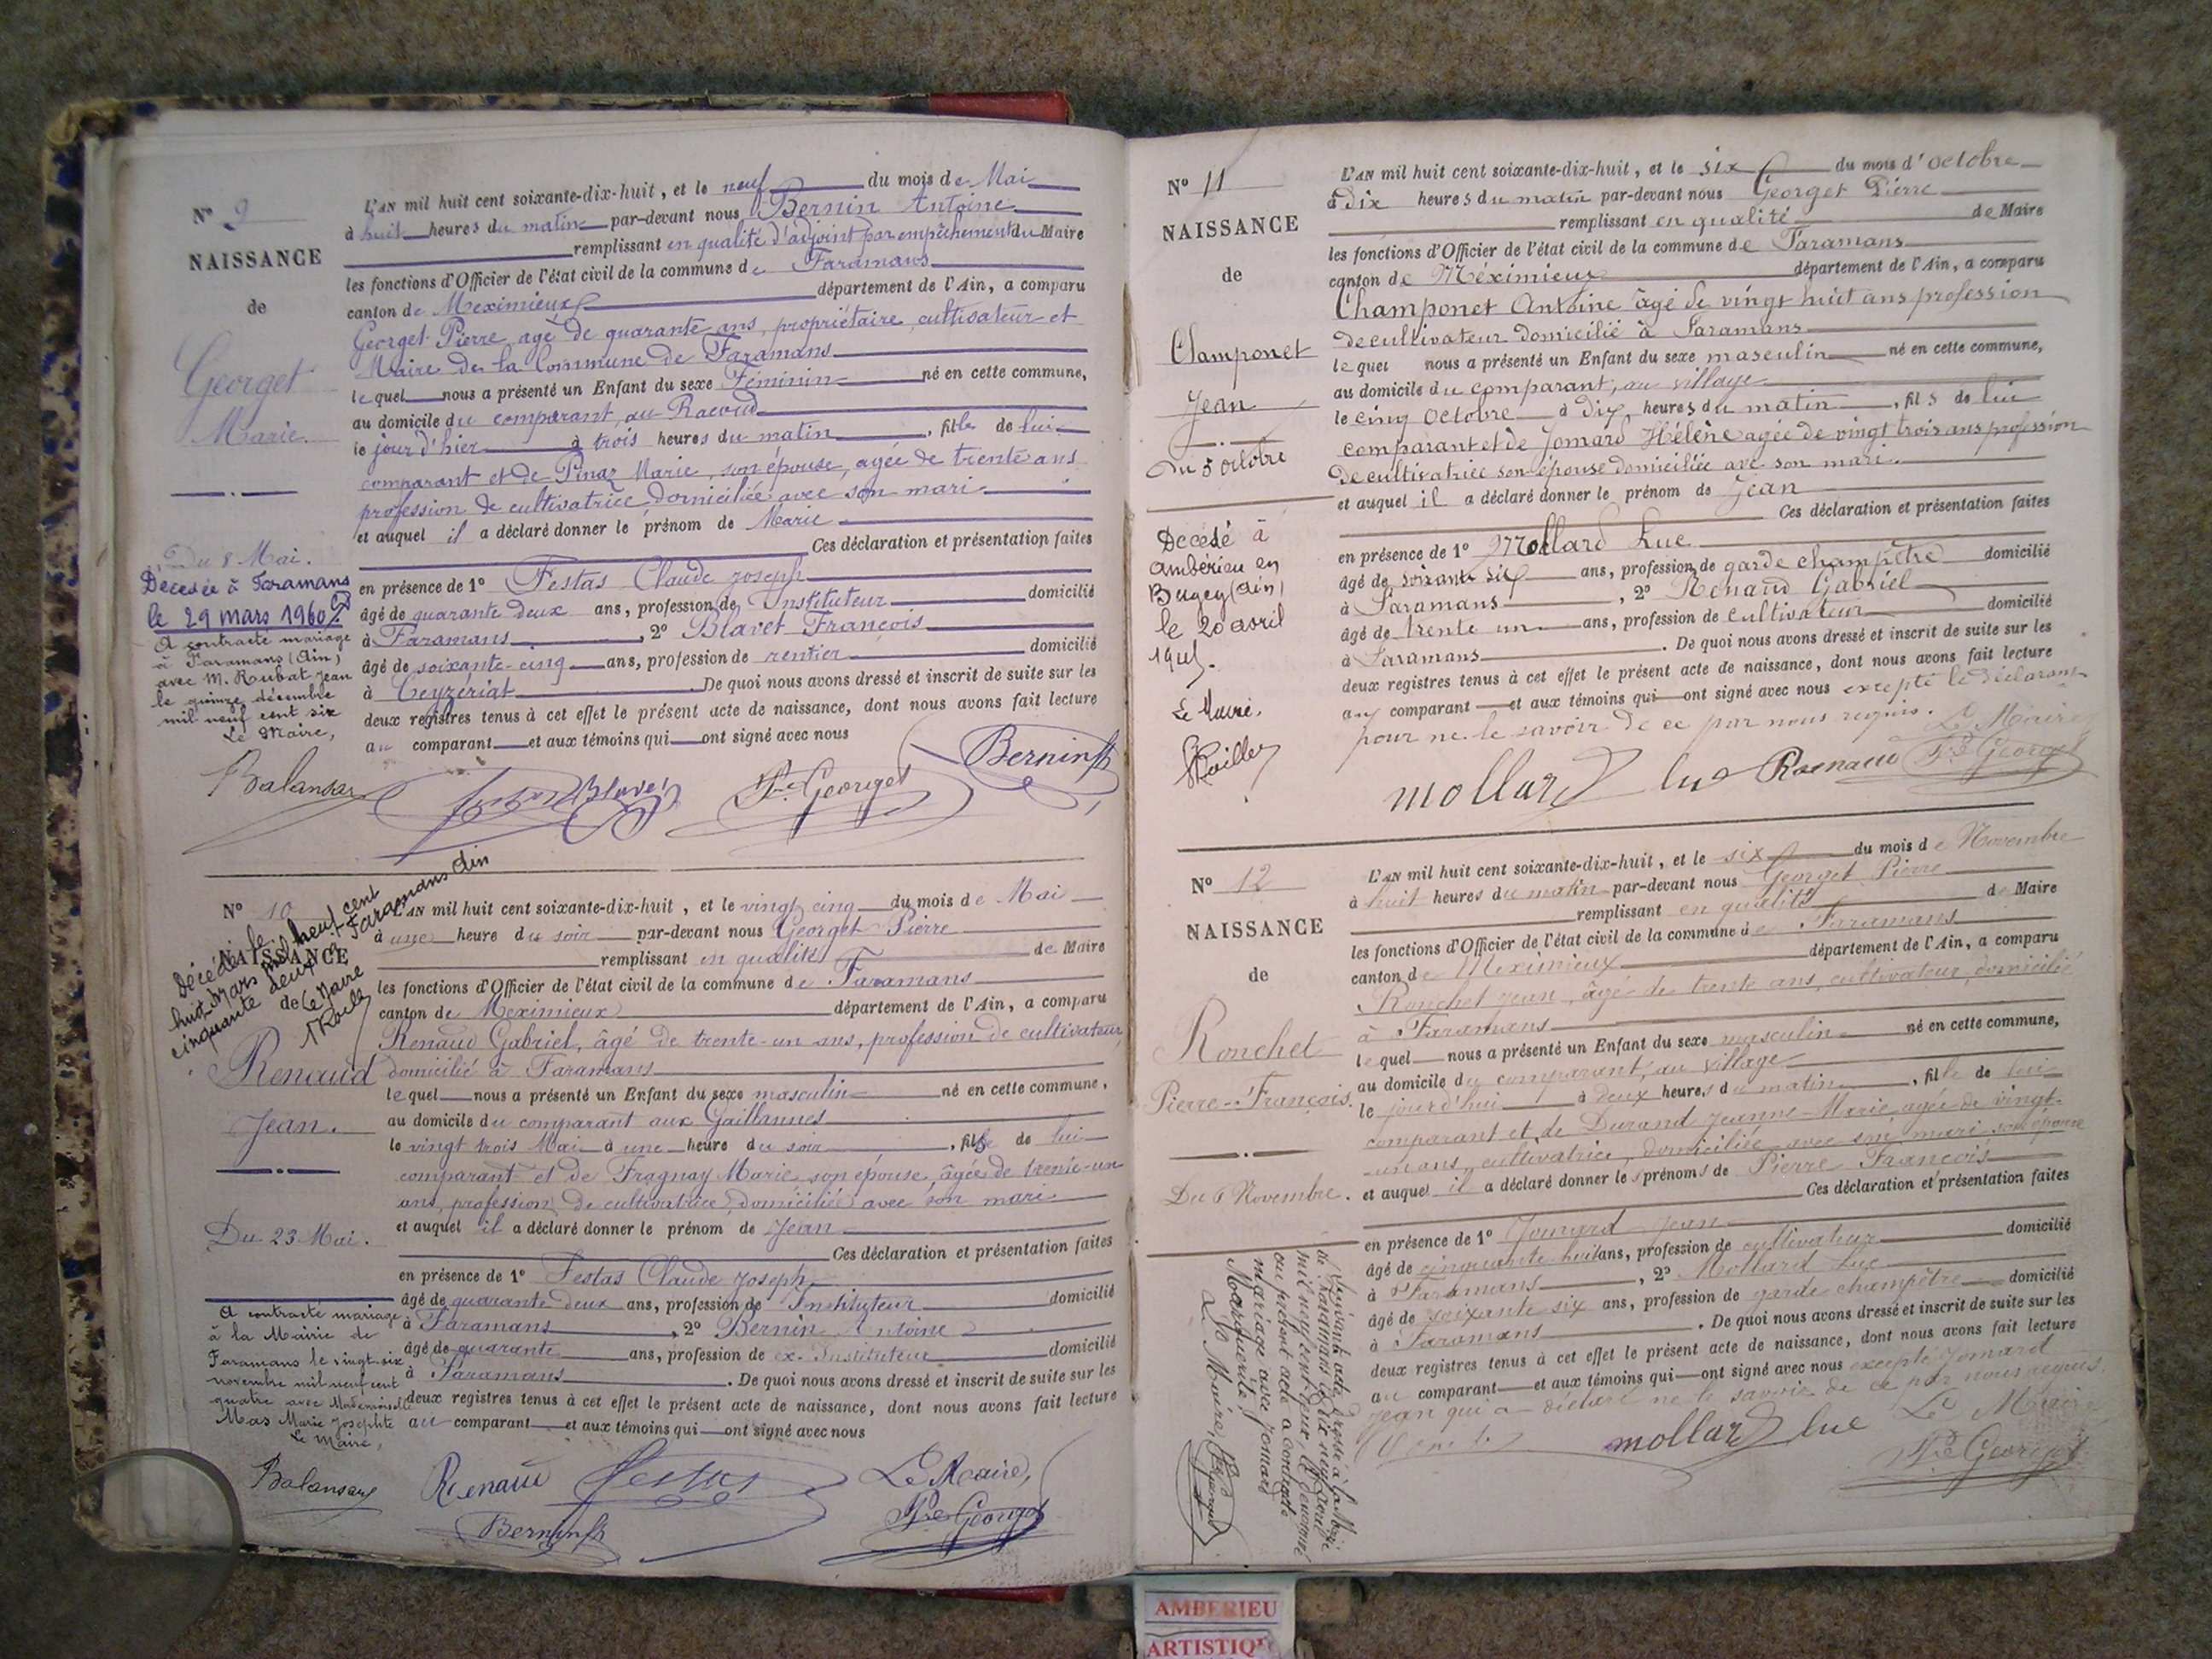 N° 9
NAISSANCE
de
Georget
Marie.
Du 8 Mai.
Décédée à Faramans
le 29 mars 1960
A contracté mariage
à Faramans (Ain)
avec M. Rubat Jean
le quinze décembre
mil neuf cent six
Le Maire,
Balansay
L'AN mil huit cent soixante-dix-huit, et le neuf du mois de Mai
à huit heures du matin par-devant nous Bernin Antoine
remplissant en qualité d'adjoint par empêchement du Maire
les fonctions d'Officier de l'état civil de la commune de Faramans
canton de Meximieux département de l'Ain, a comparu
Georget Pierre agé de quarante ans, propriétaire, cultivateur et
Maire de la Commune de Faramans
lequel nous a présenté un Enfant du sexe Féminin né en cette commune,
au domicile du comparant, au Racoud
le jour d'hier à trois heures du matin, fille de lui
comparant et de Pinaz Marie, son épouse, agée de trente ans
profession de cultivatrice domiciliée avec son mari
et auquel il a déclaré donner le prénom de Marie
Ces déclaration et présentation faites
en présence de 1° Festas Claude Joseph
âgé de quarante deux ans, profession de Instituteur domicilié
à Faramans, 2° Blavet François
âgé de soixante-cinq ans, profession de rentier domicilié
à Ceyzériat. De quoi nous avons dressé et inscrit de suite sur les
deux registres tenus à cet effet le présent acte de naissance, dont nous avons fait lecture
au comparant et aux témoins qui ont signé avec nous
Blavet Pre Georget Bernin
N° 10
NAISSANCE
de
Décédé le
huit Mars mil neuf cent
cinquante deux à Faramans Ain
Le Maire
Renaud
Jean.
Du 23 Mai.
A contracté mariage
à la Mairie de
Faramans le vingt-six
novembre mil neuf cent
quatre avec Mademoiselle
Mas Marie Josephte
Le Maire,
Balansay
L'AN mil huit cent soixante-dix-huit, et le vingt cinq du mois de Mai
à une heure du soir par-devant nous Georget Pierre
remplissant en qualité de Maire
les fonctions d'Officier de l'état civil de la commune de Faramans
canton de Meximieux département de l'Ain, a comparu
Renaud Gabriel, âgé de trente-un ans, profession de cultivateur
domicilié à Faramans
lequel nous a présenté un Enfant du sexe masculin né en cette commune,
au domicile du comparant aux Gaillannes
le vingt trois Mai à une heure du soir, fils de lui
comparant et de Fragnay Marie son épouse, âgée de trente-un
ans, profession de cultivatrice, domiciliée avec son mari
et auquel il a déclaré donner le prénom de Jean
Ces déclaration et présentation faites
en présence de 1° Festas Claude Joseph
âgé de quarante deux ans, profession de Instituteur domicilié
à Faramans, 2° Bernin Antoine
âgé de quarante ans, profession de ex-Instituteur domicilié
à Faramans. De quoi nous avons dressé et inscrit de suite sur les
deux registres tenus à cet effet le présent acte de naissance, dont nous avons fait lecture
au comparant et aux témoins qui ont signé avec nous
Renaud Festas Le Maire,
Bernin Pre Georget
N° 11
NAISSANCE
de
Champonet
Jean
Du 5 octobre
Décédé à
Ambérieu en
Bugey (Ain)
le 20 avril
Le Maire,
L'AN mil huit cent soixante-dix-huit, et le six du mois d'octobre
à dix heures du matin par-devant nous Georget Pierre
remplissant en qualité de Maire
les fonctions d'Officier de l'état civil de la commune de Faramans
canton de Méximieux département de l'Ain, a comparu
Champonet Antoine âgé de vingt huit ans profession
de cultivateur domicilié à Faramans
lequel nous a présenté un Enfant du sexe masculin né en cette commune,
au domicile du comparant, au village
le cinq Octobre à dix heures du matin, fils de lui
comparant et de Jomard Hélène agée de vingt trois ans profession
de cultivatrice son épouse domiciliée avec son mari.
et auquel il a déclaré donner le prénom de Jean
Ces déclaration et présentation faites
en présence de 1° Mollard Luc
âgé de soixante six ans, profession de garde champêtre domicilié
à Faramans, 2° Renaud Gabriel
âgé de trente un ans, profession de cultivateur domicilié
à Faramans. De quoi nous avons dressé et inscrit de suite sur les
deux registres tenus à cet effet le présent acte de naissance, dont nous avons fait lecture
au comparant et aux témoins qui ont signé avec nous excepté le déclarant
pour ne le savoir de ce par nous requis. Le Maire
mollard luc Renaud Pre Georget
N° 12
NAISSANCE
de
Ronchet
Pierre-François.
Du 6 Novembre.
Suivant acte dressé à la Mairie
de Faramans le dix neuf avril
mil neuf cent deux, le dénommé
au présent acte a contracté
mariage avec Jomard
Marguerite.
Le Maire, Pre Georget
L'AN mil huit cent soixante-dix-huit, et le six du mois de Novembre
à huit heures du matin par-devant nous Georget Pierre
remplissant en qualité de Maire
les fonctions d'Officier de l'état civil de la commune de Faramans
canton de Meximieux département de l'Ain, a comparu
Ronchet Jean, âgé de trente ans, cultivateur, domicilié
à Faramans
lequel nous a présenté un Enfant du sexe masculin né en cette commune,
au domicile du comparant, au village
le jourd'hui à deux heures du matin, fils de lui
comparant et de Durand Jeanne-Marie agée de vingt-
un ans, cultivatrice, domiciliée avec son mari son épouse
et auquel il a déclaré donner les prénoms de Pierre François
Ces déclaration et présentation faites
en présence de 1° Jomard Jean
âgé de cinquante huit ans, profession de cultivateur domicilié
à Faramans, 2° Mollard Luc
âgé de soixante six ans, profession de garde champêtre domicilié
à Faramans. De quoi nous avons dressé et inscrit de suite sur les
deux registres tenus à cet effet le présent acte de naissance, dont nous avons fait lecture
au comparant et aux témoins qui ont signé avec nous excepté Jomard
Jean qui a déclaré ne le savoir de ce par nous requis,
mollard luc Le Maire
Pre Georget
AMBERIEU
ARTISTIQ